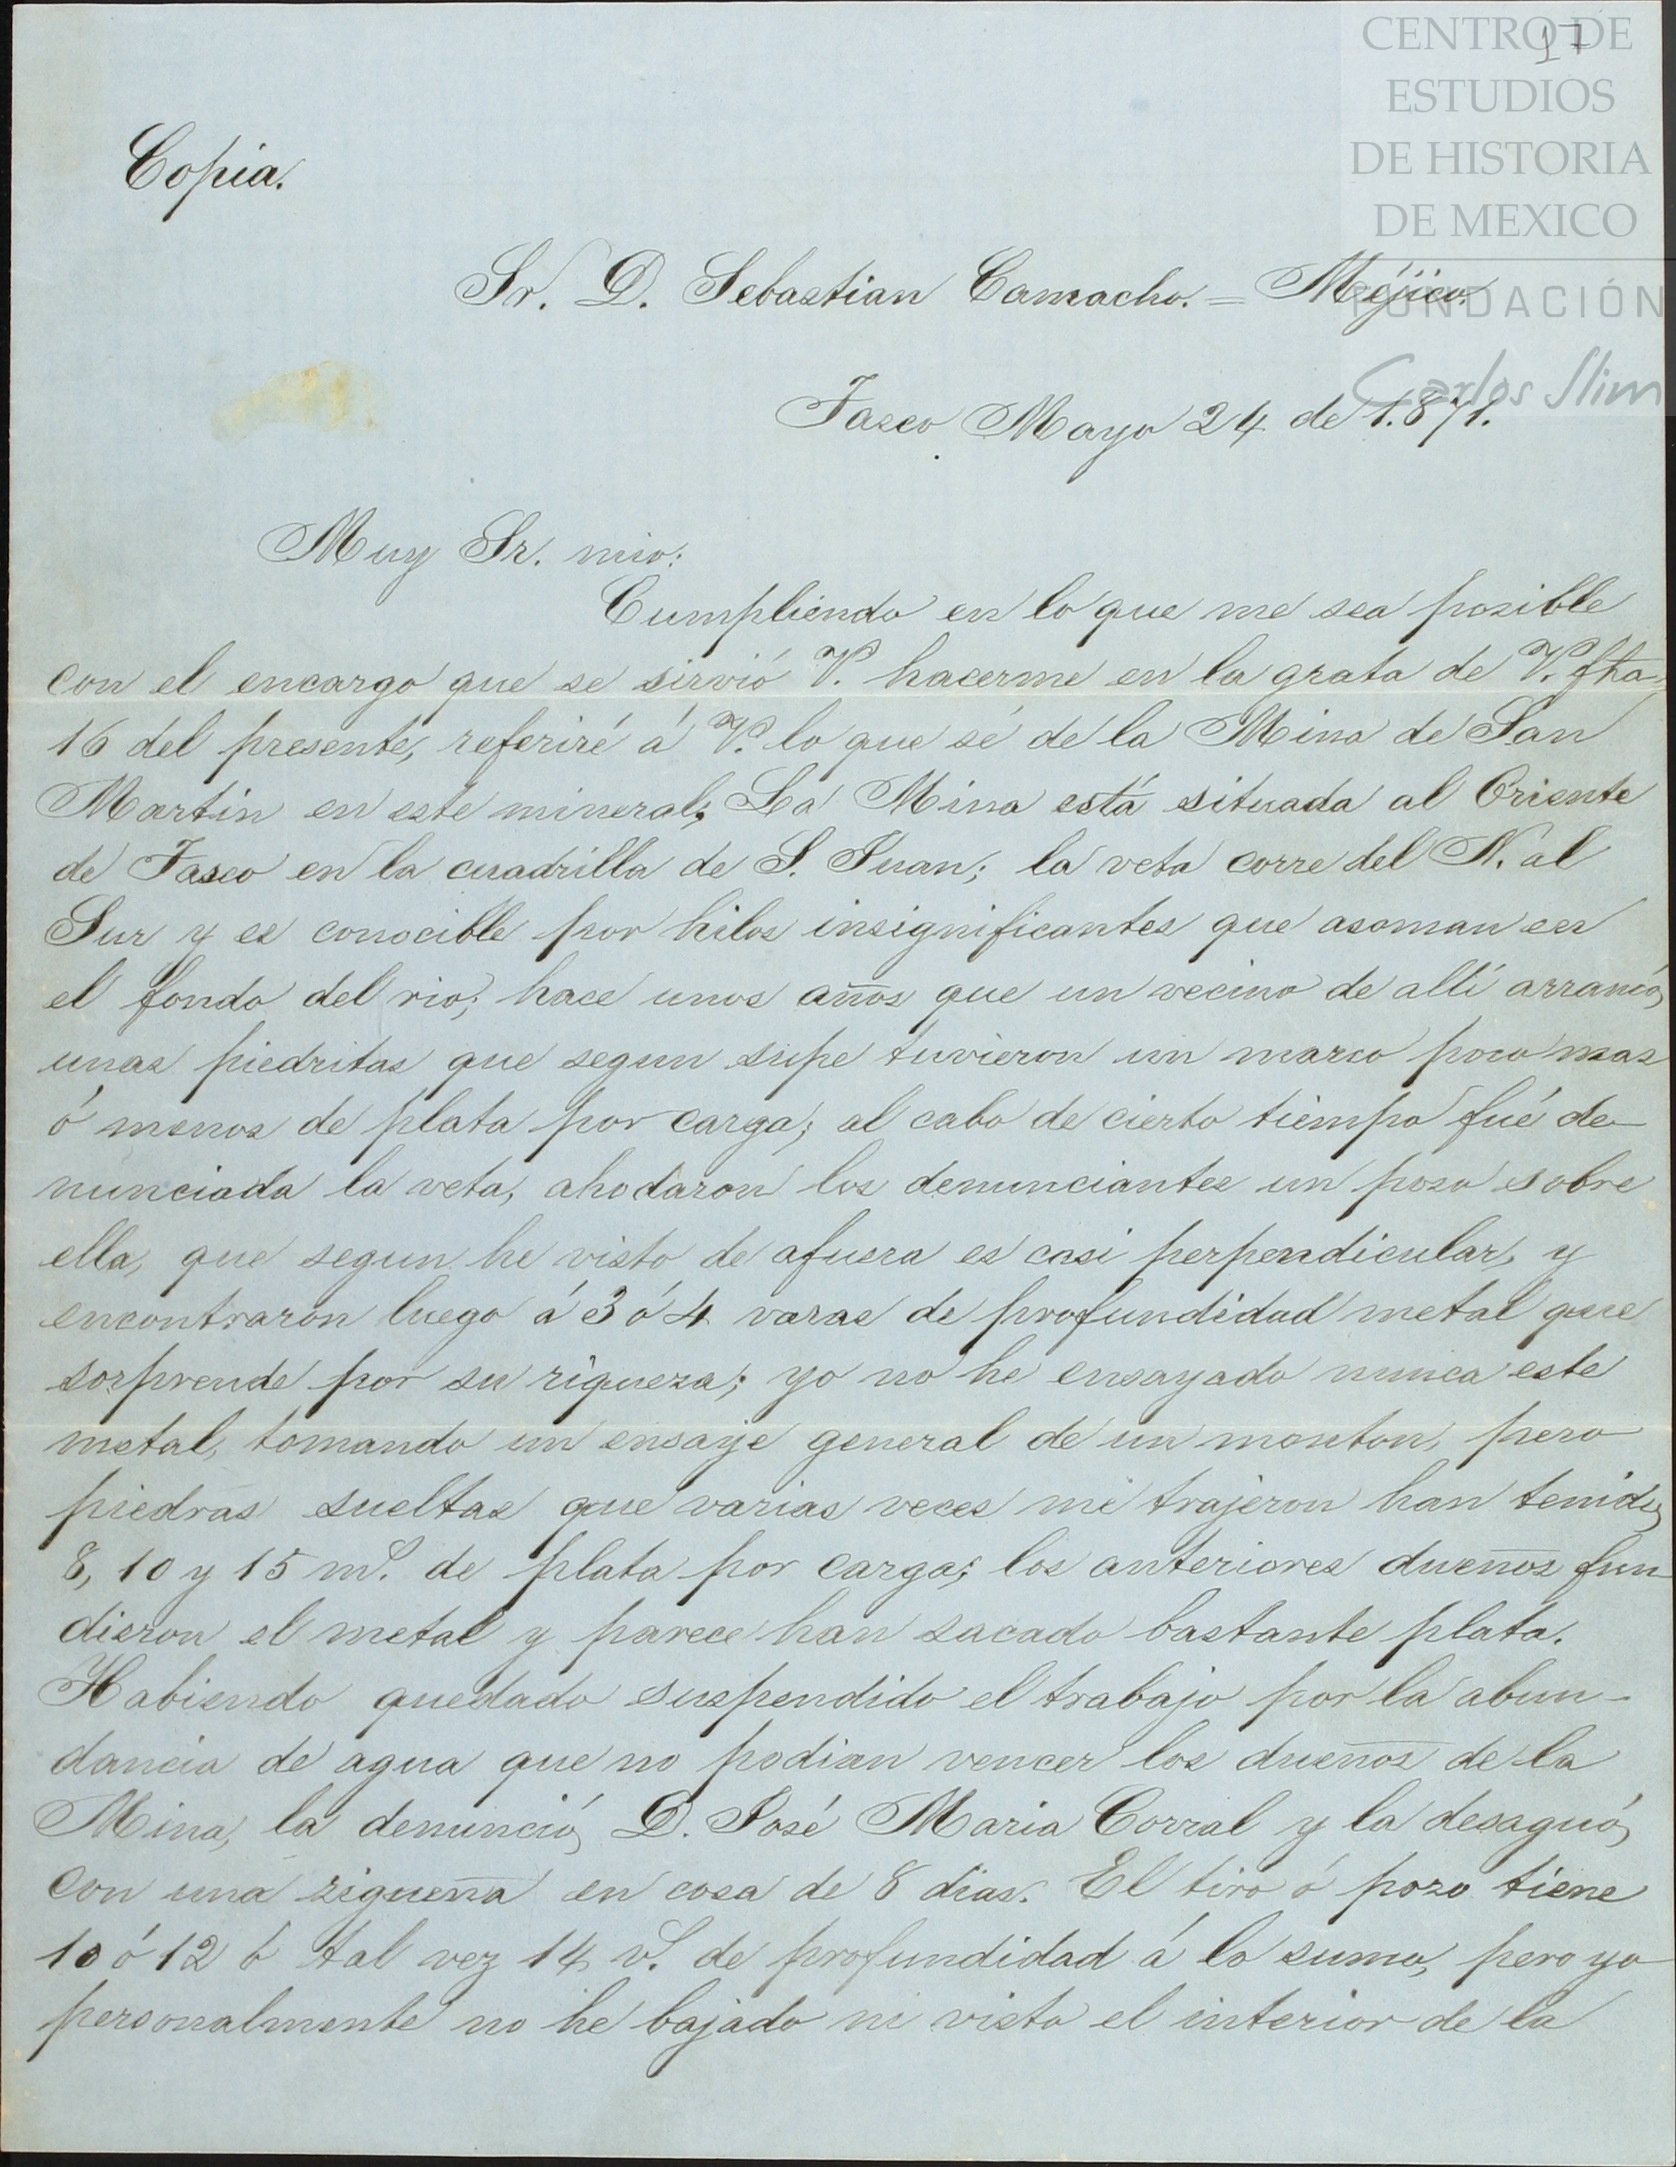 17
CENTRO DE
ESTUDIOS
DE HISTORIA
DE MEXICO
FUNDACIÓN
Carlos Slim
Copia.
Sr. D. Sebastian Camacho. = Méjico.
Tasco Mayo 24 de 1.871.
Muy Sr. mio:
Cumpliendo en lo que me sea posible
con el encargo que se sirvió V. hacerme en la grata de V. fha
16 del presente, referiré á V. lo que sé de la Mina de San
Martin en este mineral; La Mina está situada al Oriente
de Tasco en la cuadrilla de S. Juan; la veta corre del N. al
Sur y es conocible por hilos insignificantes que asoman en
el fondo del rio; hace unos años que un vecino de allí arrancó
unas piedritas que segun supe tuvieron un marco poco mas
ó menos de plata por carga; al cabo de cierto tiempo fué de-
nunciada la veta, ahodaron los denunciantes un poso sobre
ella, que segun he visto de afuera es casi perpendicular, y
encontraron luego á 3 ó 4 varas de profundidad metal que
sorprende por su riqueza; yo no he ensayado nunca este
metal, tomando un ensaye general de un monton, pero
piedras sueltas que varias veces me trajeron han tenido
8, 10 y 15 ms. de plata por carga; los anteriores dueños fun-
dieron el metal y parece han sacado bastante plata.
Habiendo quedado suspendido el trabajo por la abun-
dancia de agua que no podian vencer los dueños de la
Mina, la denunció D. José Maria Corral y la desaguó
con una zigueña en cosa de 8 dias. El tiro ó pozo tiene
10 ó 12 ó tal vez 14 vs. de profundidad á lo sumo, pero yo
personalmente no he bajado ni visto el interior de la